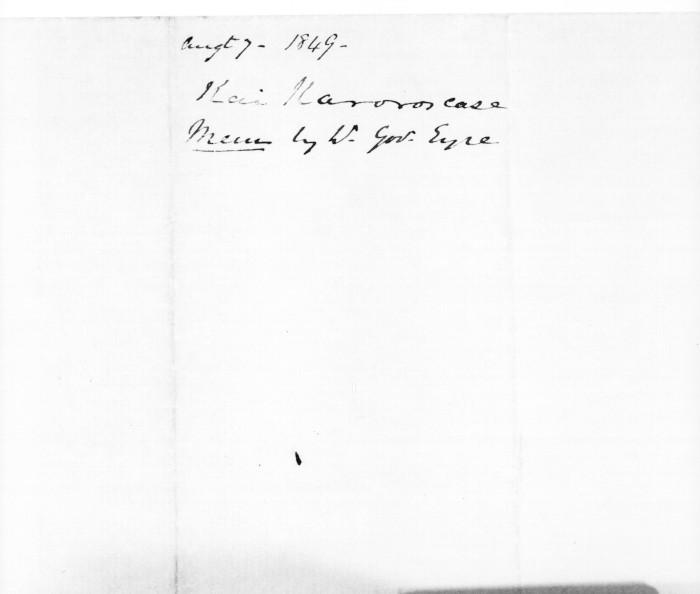 Augt 7 - 1849 -
Kai Karoros case
Mem by Lt. Gov. Eyre